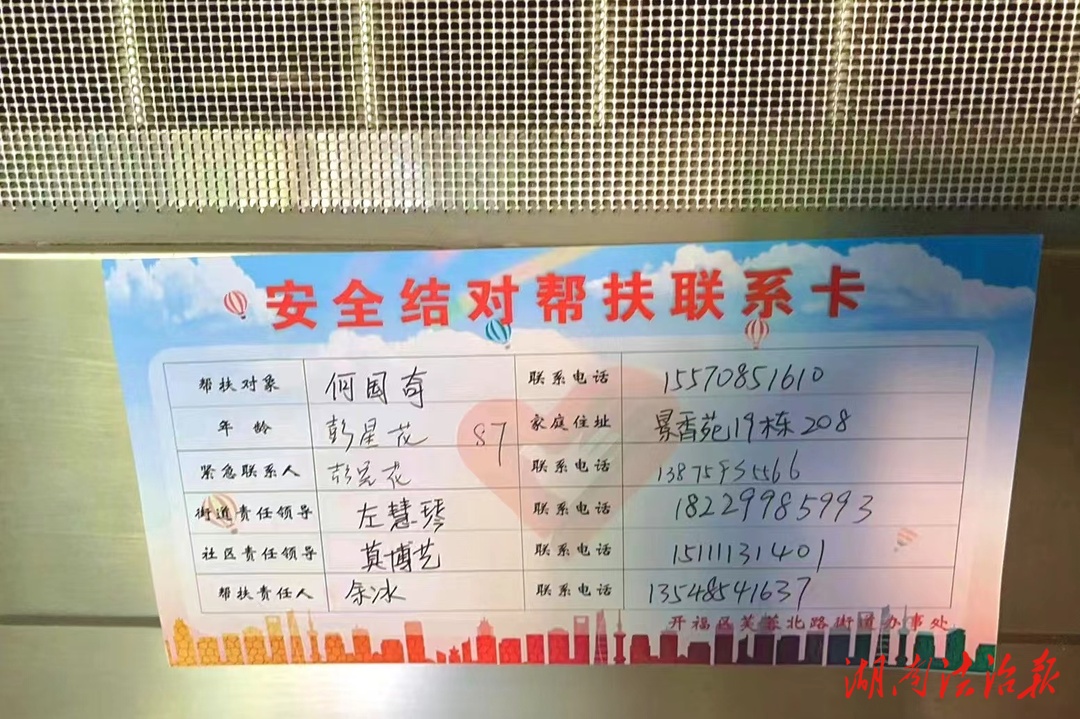 安全结对帮扶联系卡
帮扶对象 何国奇 联系电话 15570851610
年龄 彭星花 87 家庭住址 景香苑19栋208
紧急联系人 彭星花 联系电话
街道责任领导 左慧琴 联系电话 18229985993
社区责任领导 莫博艺 联系电话 15111131401
帮扶责任人 余冰 联系电话 13548541637
开福区芙蓉北路街道办事处
湖南法治报